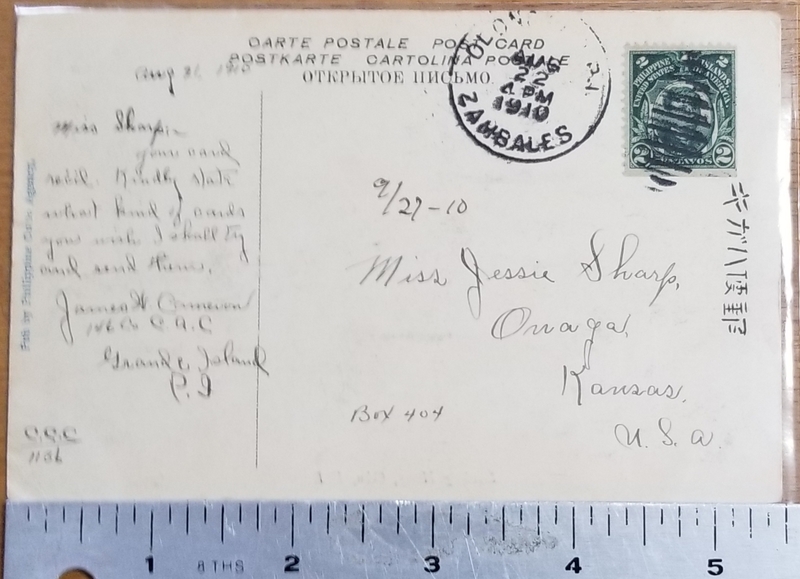 CARTE POSTALE POST CARD
POSTKARTE CARTOLINA POSTALE
ОТКРЫТОЕ ПИСЬМО.
Aug 21, 1910
Miss Sharp:-
your card
recd. Kindly state
what kind of cards
you wish I shall try
and send them.
James W. Cameron
Co C.A.C
Grande Island
P.I
C.C.C
1136
Pub by Philippine Agency,
AUG
22
4 PM
1910
ZAMBALES
2 2
PHILIPPINE ISLANDS
UNITED STATES OF AMERICA
2 CENTAVOS 2
9/27-10
Miss Jessie Sharp,
Onaga,
Kansas,
U.S.a.
Box 404
1 8THS 2 3 4 5